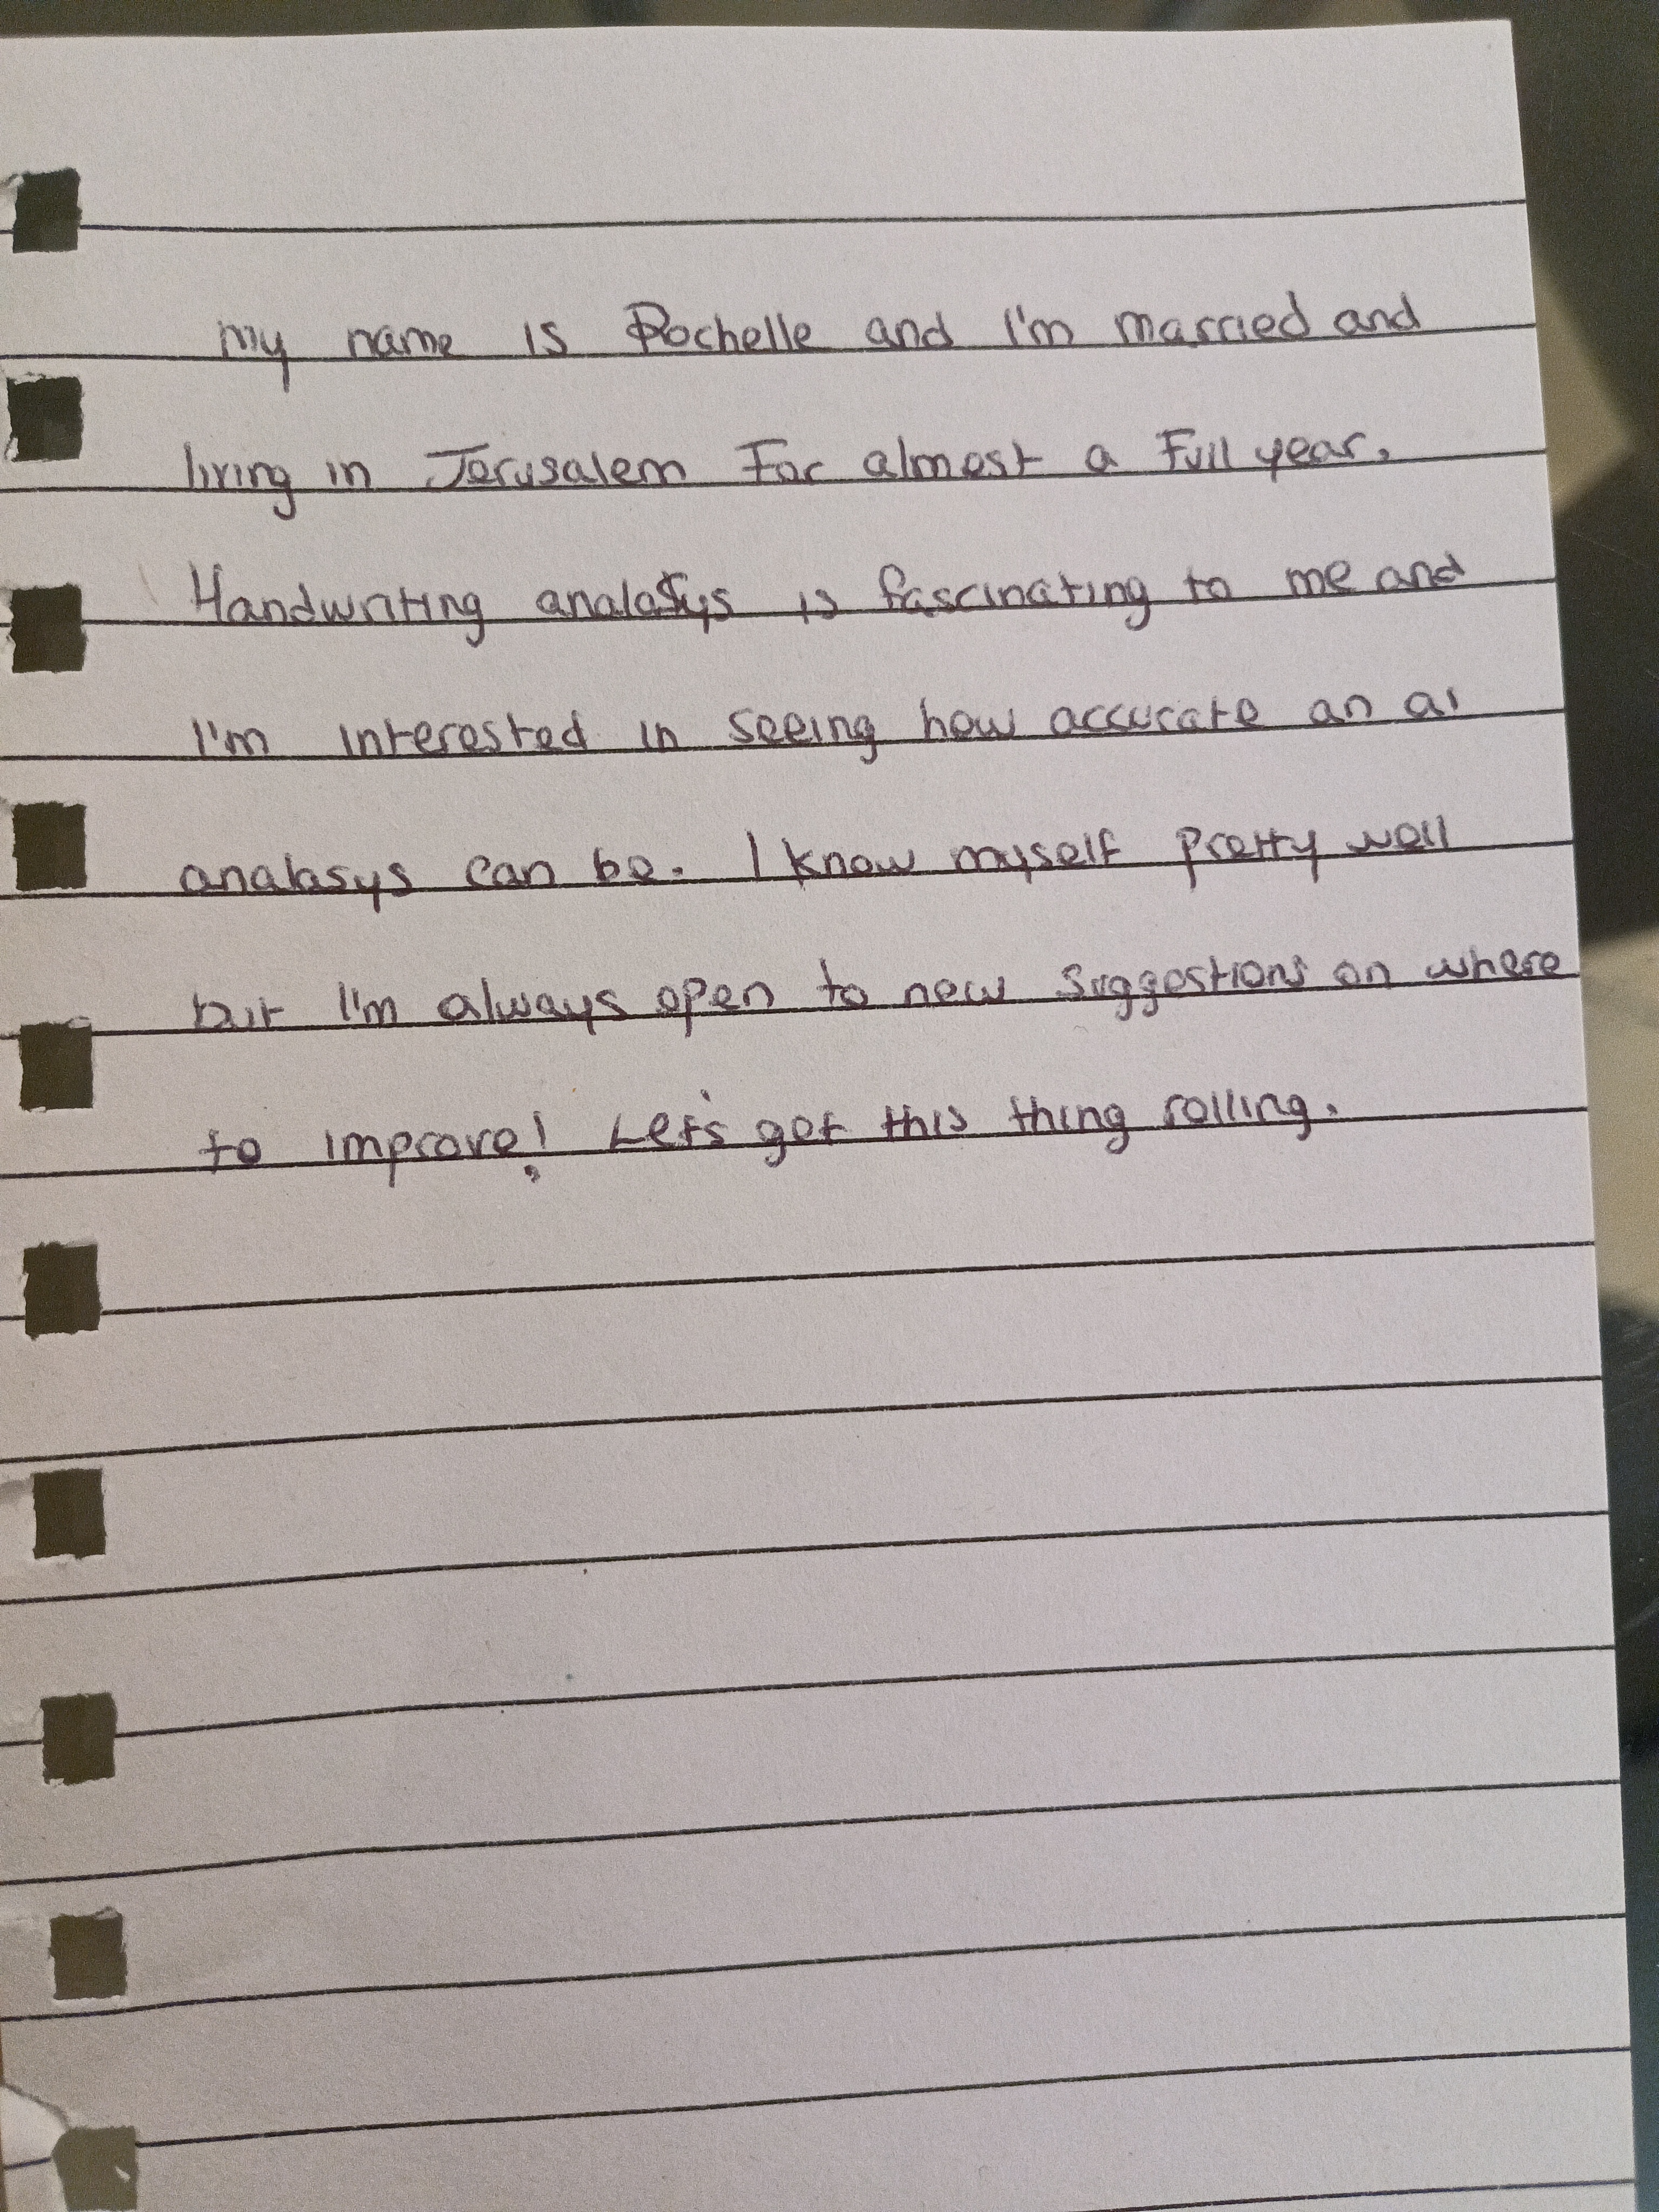 my name is Rochelle and I'm married and
living in Jerusalem For almost a Full year.
Handwriting analasys is fascinating to me and
I'm interested in seeing how accurate an ai
analasys can be. I know myself pretty well
but I'm always open to new suggestions on where
to improve! Let's get this thing rolling.